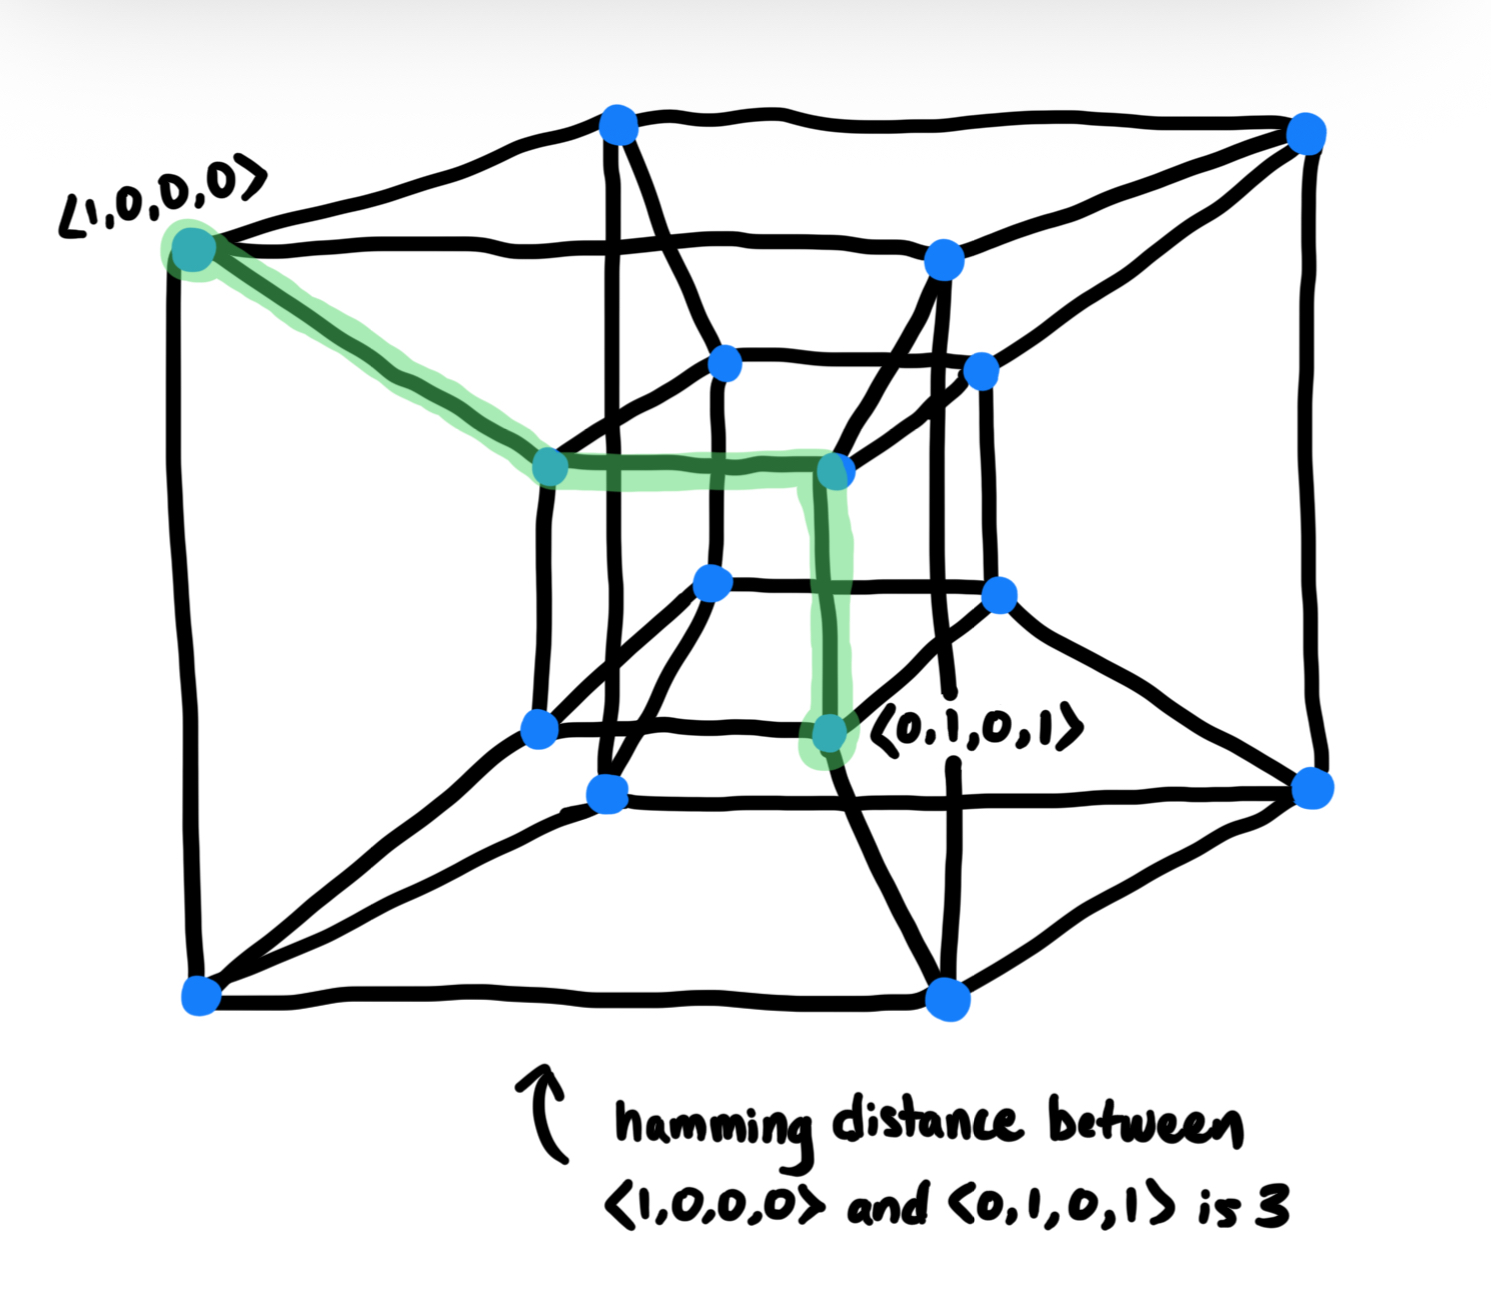 <1,0,0,0>
<0,1,0,1>
hamming distance between
<1,0,0,0> and <0,1,0,1> is 3